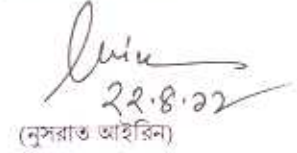 ২২.৪.১২
(নুসরাত আইরিন)